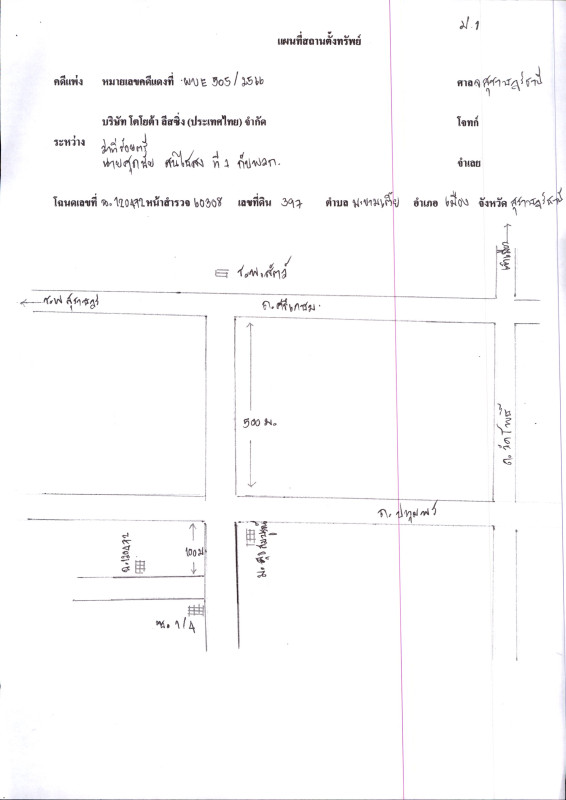 ม.1
แผนที่สถานตั้งทรัพย์
คดีแพ่ง หมายเลขคดีแดงที่ ผบE 305/2566 ศาลจ.สุราษฎร์ธานี
บริษัท โตโยต้า ลีสซิ่ง (ประเทศไทย) จำกัด โจทก์
ระหว่าง
ว่าที่ร้อยตรี
ที่ 1 กับพวก. จำเลย
โฉนดเลขที่ ฉ.120472 หน้าสำรวจ 60308 เลขที่ดิน 397 ตำบล มะขามเตี้ย อำเภอ เมือง จังหวัด สุราษฎร์ธานี
เข้าเมือง
ร.พ.สัตว์
ร.พ สุราษฎร์
ถ.ศรีเกษม
500 ม.
ถ.วัดโพธิ์
ฉ.120472
100 ม.
ซ. 1/4